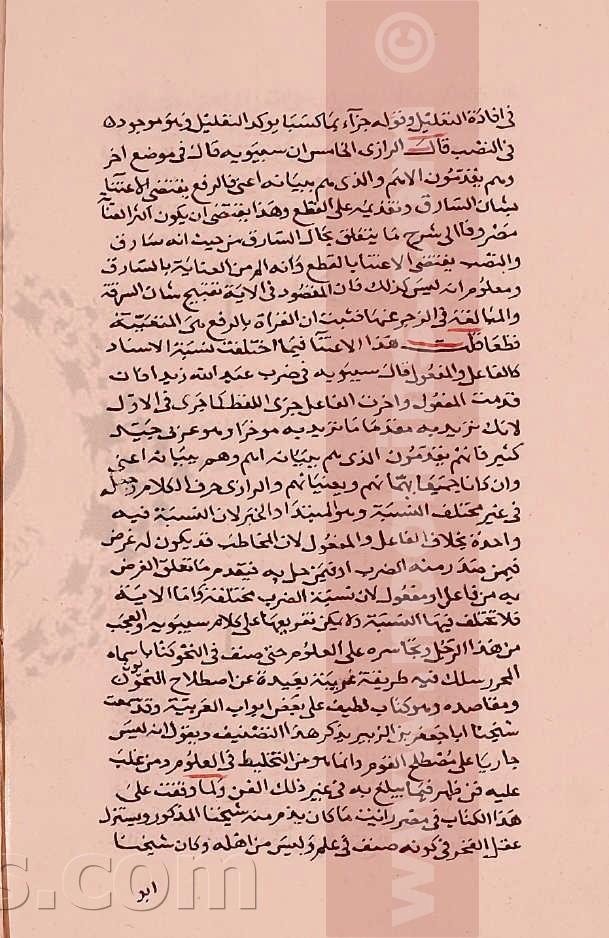 في افادة التعليل وقوله جزآء بما كسبا يوكد التعليل وهو موجود
في النصب قال الرازي الخامس ان سيبويه قال في موضع اخر
وهم يقدمون الاهم والذي هم ببيانه اعنى فالرفع يقتضي الاعتناء
بشان السارق وتقديمه على القطع وهذا يقتضي ان يكون اكثر العناية
مصروفا الى شرح ما يتعلق بحال السارق من حيث انه سارق
والنصب يقتضي الاعتنا بالقطع وانه اهم من العناية بالسارق
ومعلوم انه ليس كذلك فان المقصود في الاية تقبيح شان السرقة
والمبالغة في الزجر عنها فثبت ان القراة بالرفع هي المتعينة
قطعا قلت هذا الاعتنا فيما اختلفت نسبة الاسناد
كالفاعل والمفعول قال سيبويه في ضرب عبد الله زيدا فان
قدمت المفعول واخرت الفاعل جرى اللفظ كما جرى في الاول
لانك تريد به مقدما ما تريد به موخرا وهو عربي جيد
كثير فانهم يقدمون الذي هم ببيانه اهم وهم ببيانه اعنى
وان كانا جميعا يهمانهم ويعنيانهم والرازي حرف الكلام وجعله
في غير مختلف النسبة وهو المبتدا والخبر لان النسبة فيه
واحدة بخلاف الفاعل والمفعول لان المخاطب قد يكون له غرض
فيمن صدر منه الضرب او فيمن حل به فيقدم ما تعلق الغرض
به من فاعل او مفعول لان نسبة الضرب مختلفة واما الاية
فلا تختلف فيها النسبة ولا يمكن تفريعها على كلام سيبويه والعجب
من هذا الرجل وتجاسره على العلوم حتى صنف في النحو كتابا سماه
المحرر سلك فيه طريقة غريبة بعيدة عن اصطلاح النحويون
ومقاصده وهو كتاب لطيف على بعض ابواب العربية وقد سمعت
شيخنا ابا جعفر بن الزبير يذكر هذا التصنيف ويقول انه ليس
جاريا على مصطلح القوم وانما هو من التخليط في العلوم ومن غلب
عليه فن ظهر فيما يبلغ به في غير ذلك الفن ولما وقفت على
هذا الكتاب في مصر رايت ما كان يذم منه شيخنا المذكور ويستزل
عقل الفخر في كونه صنف في علم وليس من اهله وكان شيخنا
ابو
s.com
©